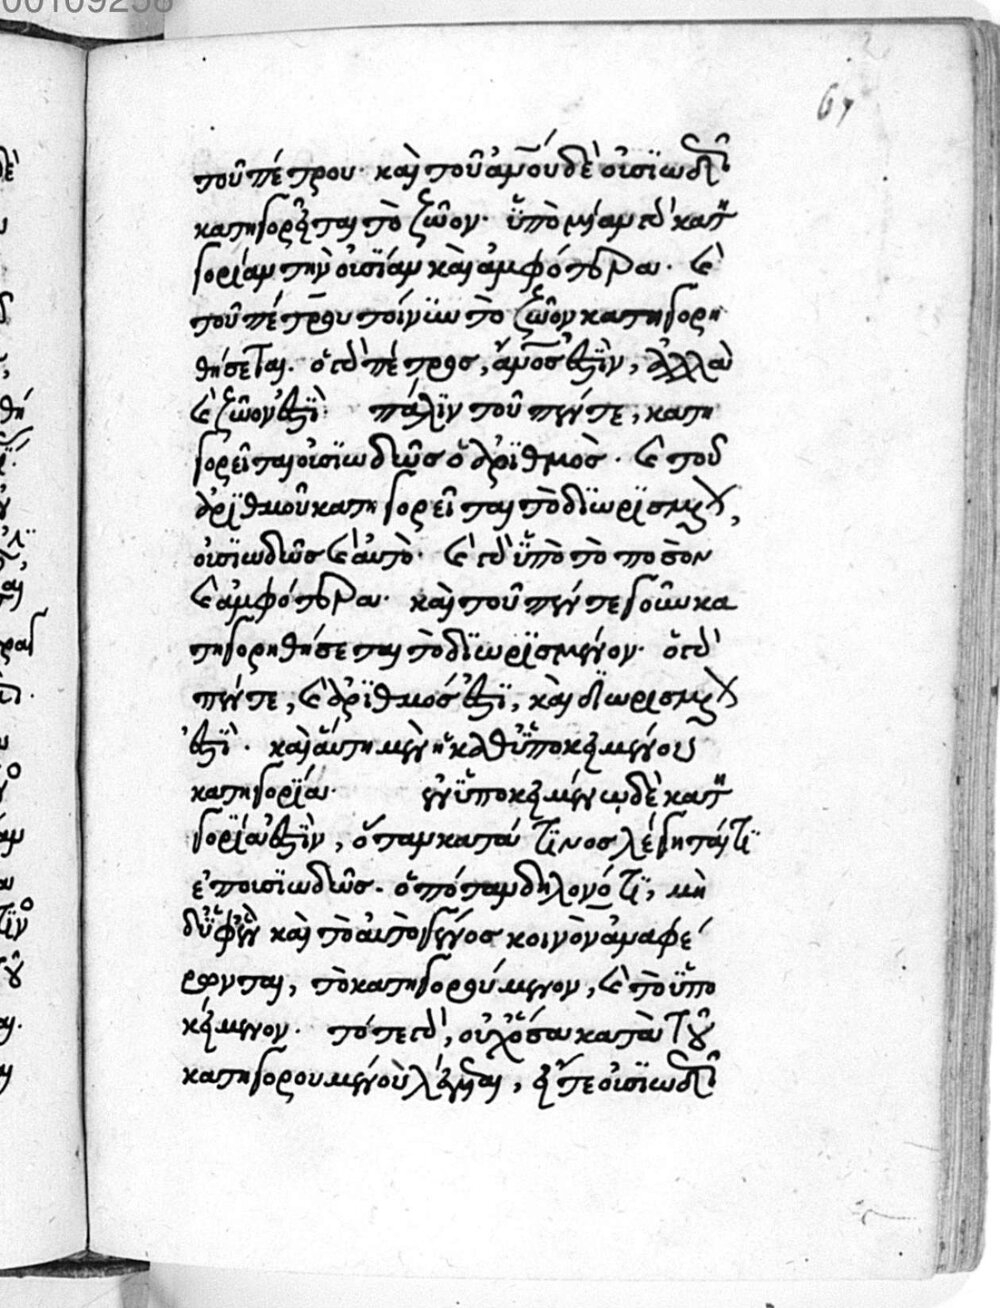 00109258
67
τοῦ πέτρου· καὶ τοῦ ἀνοῦ δὲ οὐσϊωδῶς
κατηγορεῖται τὸ ζῶον· ὑπὸ μίαν τὲ κατη
γορίαν τὴν οὐσίαν καὶ ἀμφότερα· καὶ
τοῦ πέτρου τοίνυν τὸ ζῶον κατηγορη
θήσεται. ὅτε πέτρος, ἄνος ἐστὶν, ἀλλὰ
καὶ ζῶον ἐστὶ· πάλιν τοῦ πέντε, κατη
γορεῖται οὐσϊωδῶς ὁ ἀρϊθμὸς· καὶ τοῦ
ἀρϊθμοῦ κατηγορεῖται τὸ διωρϊσμένον,
οὐσϊωδῶς καὶ αὐτὸ· καὶ τὲ ὑπὸ τὸ ποσὸν
καὶ ἀμφότερα· καὶ τοῦ πέντε γοῦν κα
τηγορηθήσεται τὸ διωρϊσμένον· ὅτε
πέντε, καὶ ἀρϊθμός ἐστϊ, καὶ διωρισμένον
ἐστὶ· καὶ αὕτη μὲν ἡ καθ ὑποκειμένου
κατηγορϊα· ἐν ὑποκειμένω δὲ κατη
γορϊα ἐστὶν, ὅταν κατά τϊνος λέγηταί τϊ
ἐποισϊωδῶς· ὁπόταν δηλονότϊ, μὴ
ὑφ ἓν καὶ τὸ αὐτὸ γένος κοινὸν ἀναφέ
ρωνται, τὸ κατηγορούμενον, καὶ τὸ ὑπο
κείμενον· τότε τὲ, οὐχ ὅσα κατὰ τοῦ
κατηγορουμένου λέγεται, εἴτε οὐσϊωδῶς